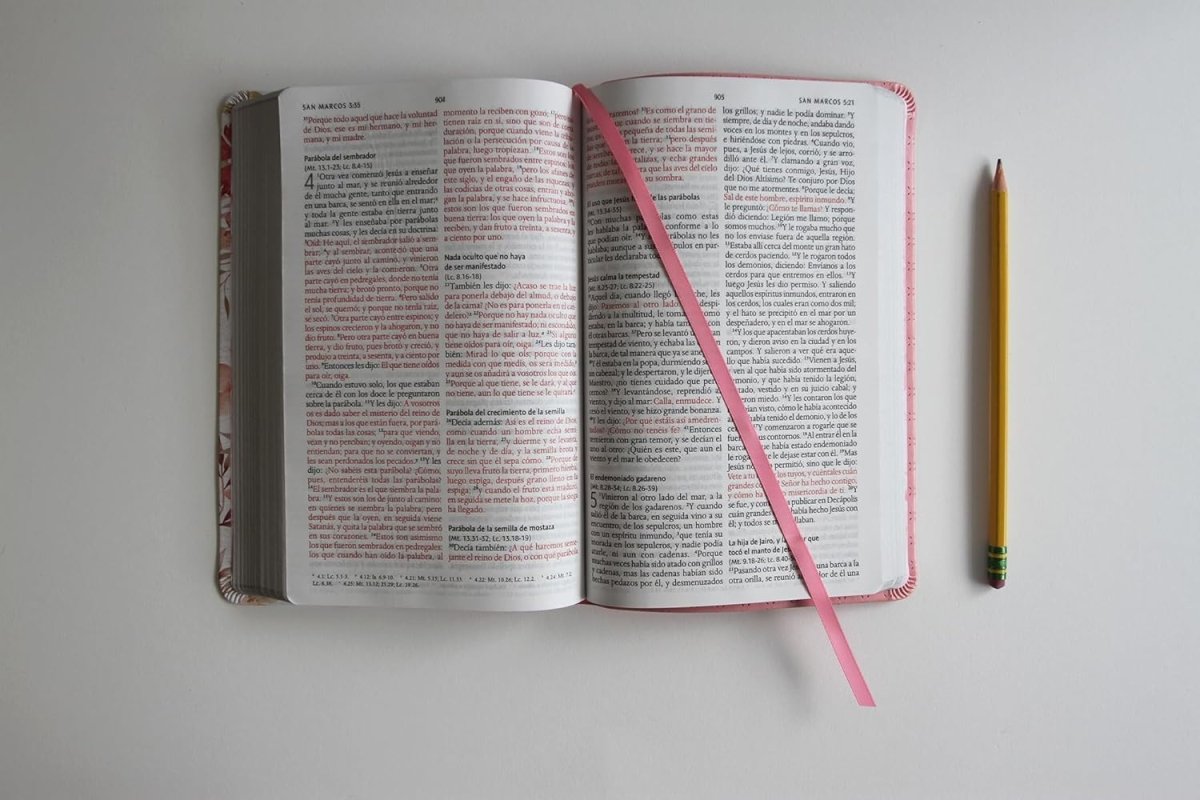 SAN MARCOS 3:35
904
35Porque todo aquel que hace la voluntad
de Dios, ese es mi hermano, y mi her-
mana, y mi madre.
Parábola del sembrador
(Mt. 13.1-23; Lc. 8.4-15)
4 1Otra vez comenzó Jesús a enseñar
junto al mar, y se reunió alrededor
de él mucha gente, tanto que entrando
en una barca, se sentó en ella en el mar;
y toda la gente estaba en tierra junto
al mar. 2Y les enseñaba por parábolas
muchas cosas, y les decía en su doctrina:
3Oíd: He aquí, el sembrador salió a sem-
brar; 4y al sembrar, aconteció que una
parte cayó junto al camino, y vinieron
las aves del cielo y la comieron. 5Otra
parte cayó en pedregales, donde no tenía
mucha tierra; y brotó pronto, porque no
tenía profundidad de tierra. 6Pero salido
el sol, se quemó; y porque no tenía raíz,
se secó. 7Otra parte cayó entre espinos; y
los espinos crecieron y la ahogaron, y no
dio fruto. 8Pero otra parte cayó en buena
tierra, y dio fruto, pues brotó y creció, y
produjo a treinta, a sesenta, y a ciento por
uno. 9Entonces les dijo: El que tiene oídos
para oír, oiga.
10Cuando estuvo solo, los que estaban
cerca de él con los doce le preguntaron
sobre la parábola. 11Y les dijo: A vosotros
os es dado saber el misterio del reino de
Dios; mas a los que están fuera, por pará-
bolas todas las cosas; 12para que viendo,
vean y no perciban; y oyendo, oigan y no
entiendan; para que no se conviertan, y
les sean perdonados los pecados. 13Y les
dijo: ¿No sabéis esta parábola? ¿Cómo,
pues, entenderéis todas las parábolas?
14El sembrador es el que siembra la pala-
bra. 15Y estos son los de junto al camino:
en quienes se siembra la palabra, pero
después que la oyen, en seguida viene
Satanás, y quita la palabra que se sembró
en sus corazones. 16Estos son asimismo
los que fueron sembrados en pedregales:
los que cuando han oído la palabra, al
momento la reciben con gozo; 17pero no
tienen raíz en sí, sino que son de corta
duración, porque cuando viene la tribu-
lación o la persecución por causa de la
palabra, luego tropiezan. 18Estos son los
que fueron sembrados entre espinos: los
que oyen la palabra, 19pero los afanes de
este siglo, y el engaño de las riquezas, y
las codicias de otras cosas, entran y aho-
gan la palabra, y se hace infructuosa. 20Y
estos son los que fueron sembrados en
buena tierra: los que oyen la palabra y la
reciben, y dan fruto a treinta, a sesenta, y
a ciento por uno.
Nada oculto que no haya
de ser manifestado
(Lc. 8.16-18)
21También les dijo: ¿Acaso se trae la luz
para ponerla debajo del almud, o debajo
de la cama? ¿No es para ponerla en el can-
delero? 22Porque no hay nada oculto que
no haya de ser manifestado; ni escondido,
que no haya de salir a luz. 23Si alguno
tiene oídos para oír, oiga. 24Les dijo tam-
bién: Mirad lo que oís; porque con la
medida con que medís, os será medido,
y aun se os añadirá a vosotros los que oís.
25Porque al que tiene, se le dará; y al que
no tiene, aun lo que tiene se le quitará.
Parábola del crecimiento de la semilla
26Decía además: Así es el reino de Dios,
como cuando un hombre echa semi-
lla en la tierra; 27y duerme y se levanta,
de noche y de día, y la semilla brota y
crece sin que él sepa cómo. 28Porque de
suyo lleva fruto la tierra, primero hierba,
luego espiga, después grano lleno en la
espiga; 29y cuando el fruto está maduro,
en seguida se mete la hoz, porque la siega
ha llegado.
Parábola de la semilla de mostaza
(Mt. 13.31-32; Lc. 13.18-19)
30Decía también: ¿A qué haremos seme-
jante el reino de Dios, o con qué parábola
905
SAN MARCOS 5:21
31Es como el grano de
cuando se siembra en tie-
pequeña de todas las semi-
en la tierra; 32pero después
de sembrado, crece, y se hace la mayor
de todas las hortalizas, y echa grandes
que las aves del cielo
pueden morar su sombra.
El uso que Jesús de las parábolas
(Mt. 13.34-35)
33Con muchas parábolas como estas
les hablaba la conforme a lo
que podían oír. parábolas no les
hablaba; aunque a sus en par-
ticular les declaraba
Jesús calma la tempestad
(Mt. 8.23-27; Lc. 8.22-25)
35Aquel día, cuando llegó la noche, les
dijo: Pasemos al otro lado. despi-
diendo a la multitud, le tomaron
estaba, en la barca; y había también con
él otras barcas. 37Pero se levantó
tempestad de viento, y echaba las
la barca, de tal manera que ya se
38Y él estaba en la popa, durmiendo
un cabezal; y le despertaron, y le
Maestro, ¿no tienes cuidado que
39Y levantándose, reprendió al
viento, y dijo al mar: Calla, enmudece. Y
cesó el viento, y se hizo grande bonanza.
40Y les dijo: ¿Por qué estáis así amedren-
tados? ¿Cómo no tenéis fe? 41Entonces
temieron con gran temor, y se decían el
uno al otro: ¿Quién es este, que aun el
viento y el mar le obedecen?
El endemoniado gadareno
(Mt. 8.28-34; Lc. 8.26-39)
5 1Vinieron al otro lado del mar, a la
región de los gadarenos. 2Y cuando
salió él de la barca, en seguida vino a su
encuentro, de los sepulcros, un hombre
con un espíritu inmundo, 3que tenía su
morada en los sepulcros, y nadie podía
atarle, ni aun con cadenas. 4Porque
muchas veces había sido atado con grillos
y cadenas, mas las cadenas habían sido
hechas pedazos por él, y desmenuzados
los grillos; y nadie le podía dominar. 5Y
siempre, de día y de noche, andaba dando
voces en los montes y en los sepulcros,
e hiriéndose con piedras. 6Cuando vio,
pues, a Jesús de lejos, corrió, y se arro-
dilló ante él. 7Y clamando a gran voz,
dijo: ¿Qué tienes conmigo, Jesús, Hijo
del Dios Altísimo? Te conjuro por Dios
que no me atormentes. 8Porque le decía:
Sal de este hombre, espíritu inmundo. 9Y
le preguntó: ¿Cómo te llamas? Y respon-
dió diciendo: Legión me llamo; porque
somos muchos. 10Y le rogaba mucho que
no los enviase fuera de aquella región.
11Estaba allí cerca del monte un gran hato
de cerdos paciendo. 12Y le rogaron todos
los demonios, diciendo: Envíanos a los
cerdos para que entremos en ellos. 13Y
luego Jesús les dio permiso. Y saliendo
aquellos espíritus inmundos, entraron en
los cerdos, los cuales eran como dos mil;
y el hato se precipitó en el mar por un
despeñadero, y en el mar se ahogaron.
14Y los que apacentaban los cerdos huye-
ron, y dieron aviso en la ciudad y en los
campos. Y salieron a ver qué era aque-
llo que había sucedido. 15Vienen a Jesús,
y ven al que había sido atormentado del
demonio, y que había tenido la legión,
sentado, vestido y en su juicio cabal; y
tuvieron miedo. 16Y les contaron los que
habían visto, cómo le había acontecido
al que había tenido el demonio, y lo de los
17Y comenzaron a rogarle que se
fuera de sus contornos. 18Al entrar él en la
barca, el que había estado endemoniado
le rogaba que le dejase estar con él. 19Mas
Jesús no permitió, sino que le dijo:
Vete a tu los tuyos, y cuéntales cuán
grandes Señor ha hecho contigo,
y cómo ha misericordia de ti. 20Y
se fue, y publicar en Decápolis
cuán grandes había hecho Jesús con
él; y todos se maravillaban.
La hija de Jairo, y la mujer que
tocó el manto de Jesús
(Mt. 9.18-26; Lc. 8.40-56)
21Pasando otra vez Jesús en una barca a la
otra orilla, se reunió alrededor de él una